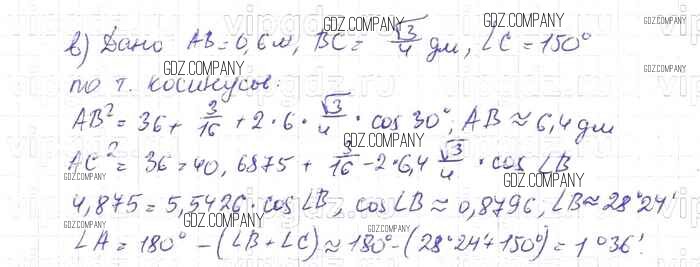 в) Дано AB = 0,6 м, BC = √3/4 дм, ∠C = 150°
по т. косинусов:
AB² = 36 + 3/16 + 2 · 6 · √3/4 · cos 30°, AB ≈ 6,4 дм
AC² = 36 = 40,6875 + 3/16 - 2 · 6,4 √3/4 · cos ∠B
4,875 = 5,5426 · cos ∠B, cos ∠B ≈ 0,8796, ∠B ≈ 28°24'
∠A = 180° - (∠B + ∠C) ≈ 180° - (28°24' + 150°) = 1°36'.
GDZ.COMPANY
GDZ.COMPANY
GDZ.COMPANY
GDZ.COMPANY
GDZ.COMPANY
GDZ.COMPANY
GDZ.COMPANY
GDZ.COMPANY
GDZ.COMPANY